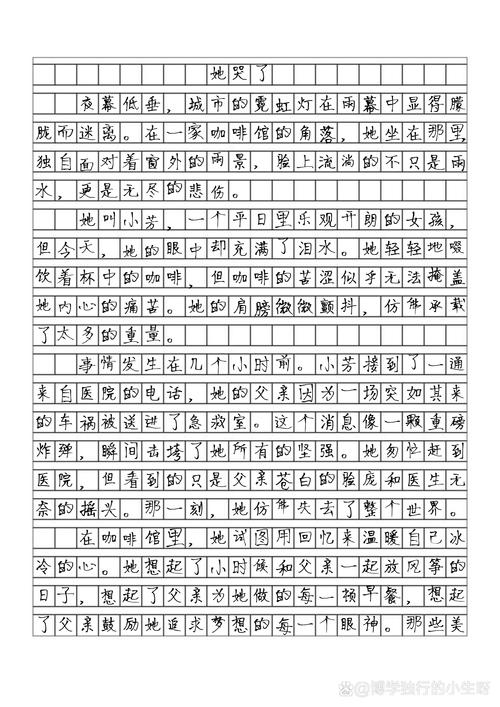 她哭了
夜幕低垂，城市的霓虹灯在雨幕中显得朦
胧而迷离。在一家咖啡馆的角落，她坐在那里，
独自面对着窗外的雨景，脸上流淌的不只是雨
水，更是无尽的悲伤。
她叫小芳，一个平日里乐观开朗的女孩，
但今天，她的眼中却充满了泪水。她轻轻地啜
饮着杯中的咖啡，但咖啡的苦涩似乎无法掩盖
她内心的痛苦。她的肩膀微微颤抖，仿佛承载
了太多的重量。
事情发生在几个小时前。小芳接到了一通
来自医院的电话，她的父亲因为一场突如其来
的车祸被送进了急救室。这个消息像一颗重磅
炸弹，瞬间击垮了她所有的坚强。她匆忙赶到
医院，但看到的只是父亲苍白的脸庞和医生无
奈的摇头。那一刻，她仿佛失去了整个世界。
在咖啡馆里，她试图用回忆来温暖自己冰
冷的心。她想起了小时候和父亲一起放风筝的
日子，想起了父亲为她做的每一顿早餐，想起
了父亲鼓励她追求梦想的每一个眼神。那些美
博学独行的小生呀